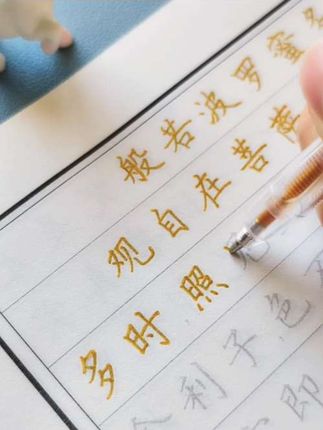 般若波罗蜜多
观自在菩萨
多时照
利子色
即